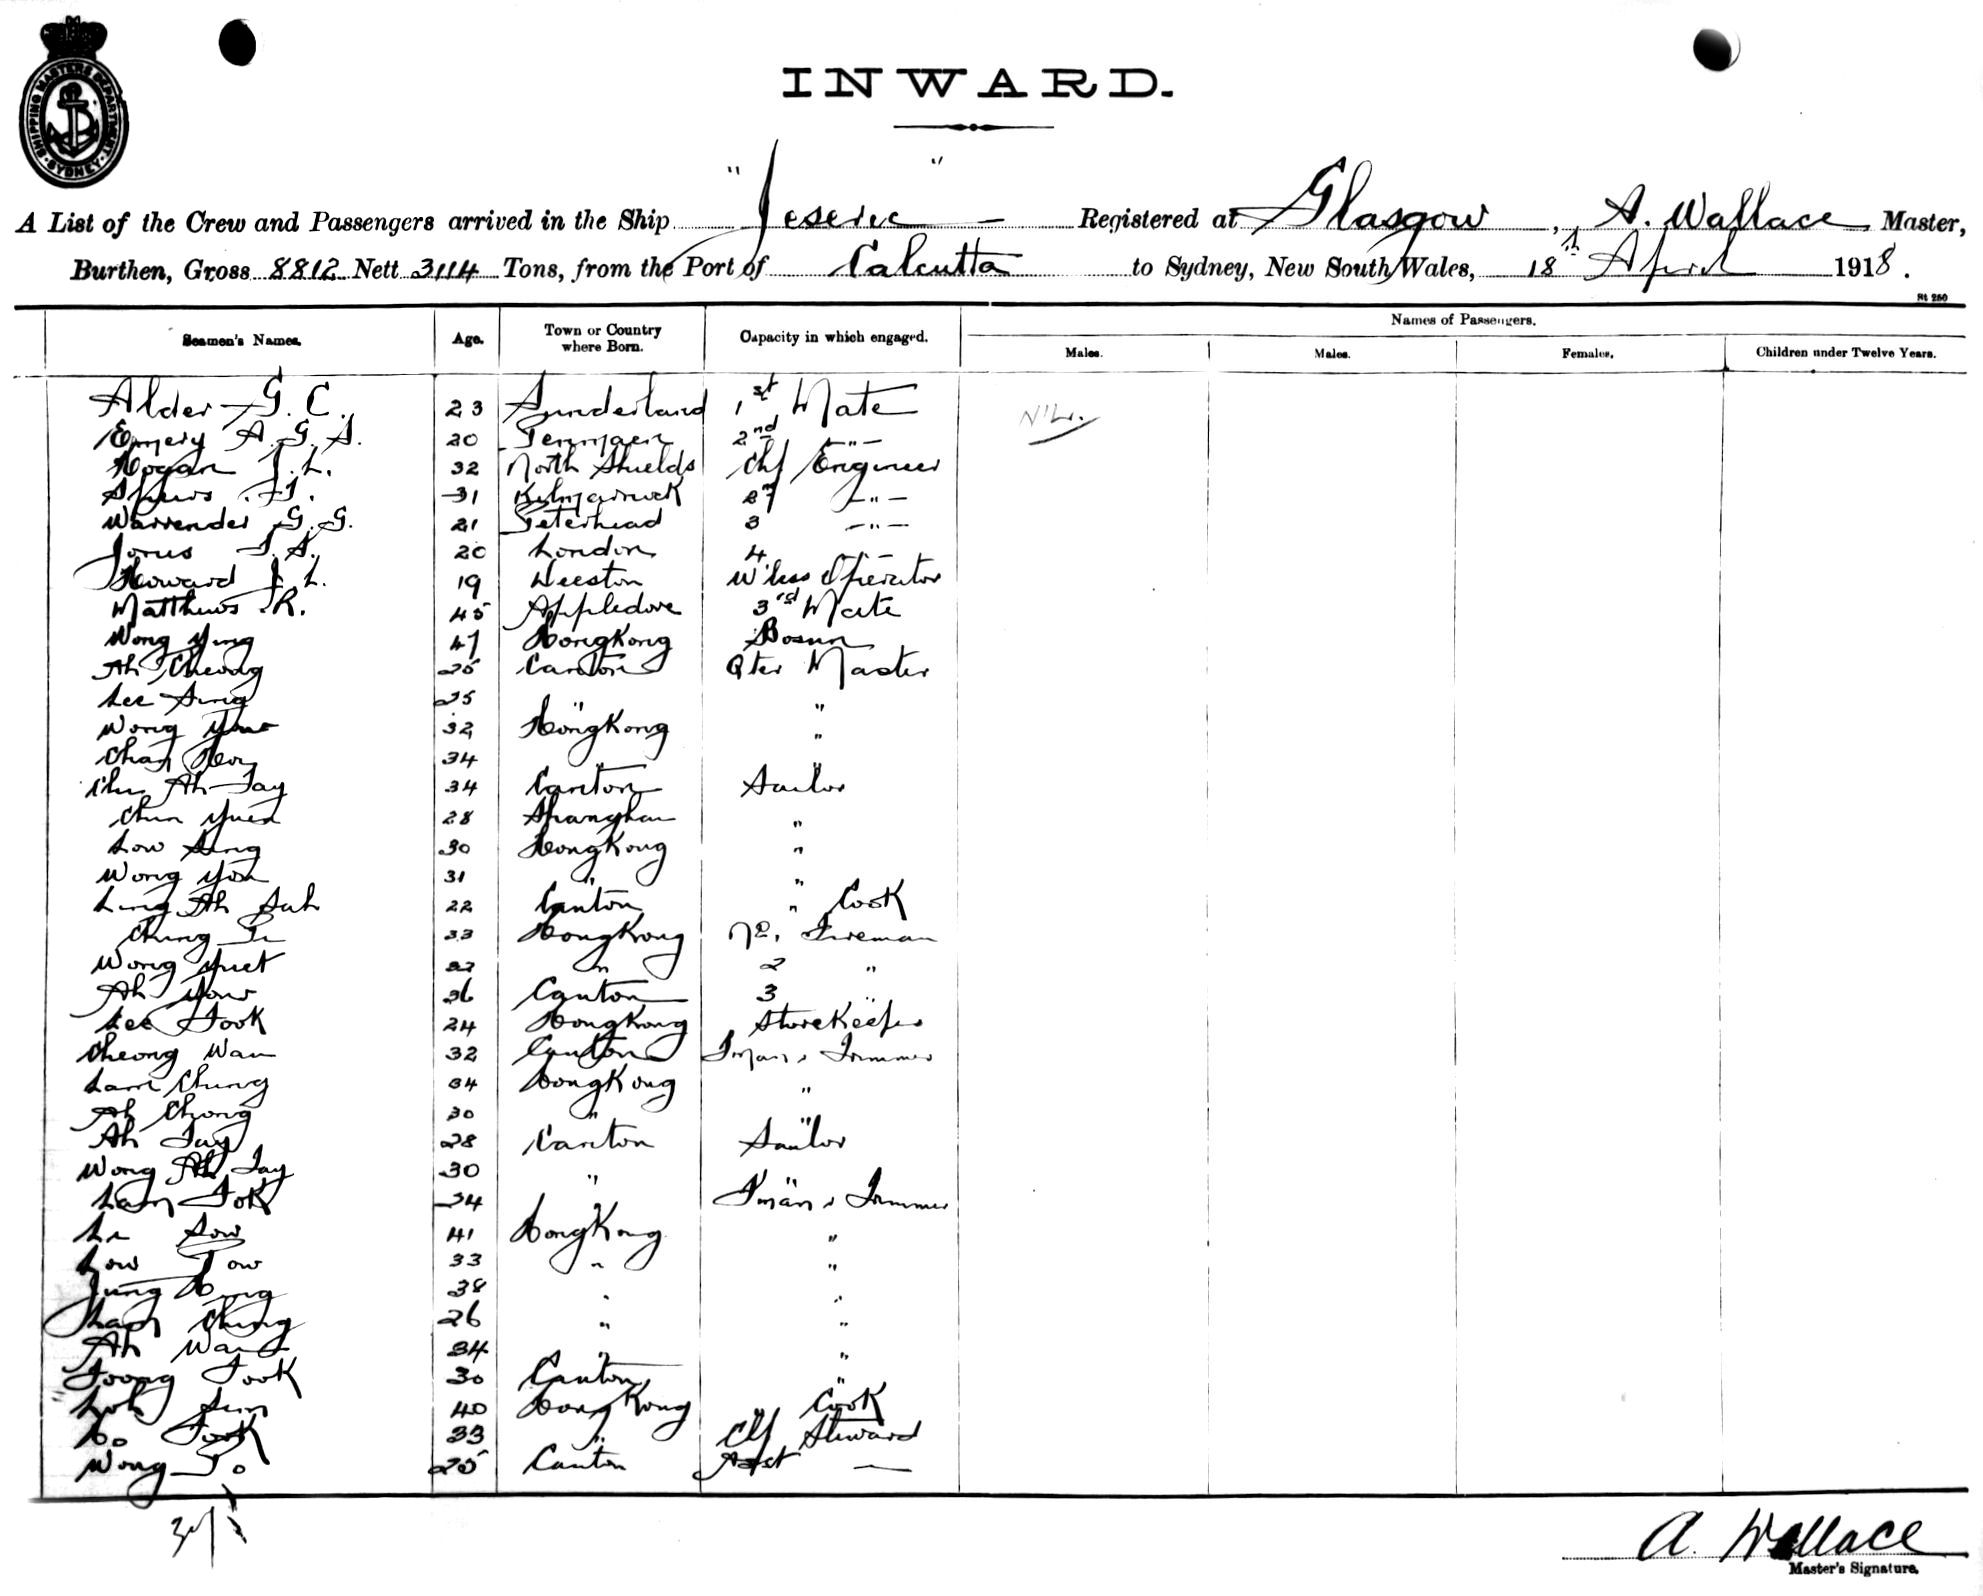 SHIPPING MASTERS DEPARTMENT · SYDNEY ·
INWARD.
A List of the Crew and Passengers arrived in the Ship "Jeseric" Registered at Glasgow, A. Wallace Master,
Burthen, Gross 8812 Nett 3114 Tons, from the Port of Calcutta to Sydney, New South Wales, 18th April 1918.
St 260
Seamen's Names. Age. Town or Country where Born. Capacity in which engaged. Names of Passengers.
Males. Males. Females. Children under Twelve Years.
Alder G. C. 23 Sunderland 1st Mate Nil.
Emery A. G. A. 20 2nd -"-
Hogan J. L. 32 North Shields Chf Engineer
31 Kilmarnock 2nd -"-
Warrender G. G. 21 Peterhead 3 -"-
20 London 4
Howard J. L. 19 W'less Operator
Matthews R. 45 Appledore 3rd Mate
Wong Ying 47 HongKong Bosun
Ah Cheong 25 Canton Qter Master
Lee Sing 25 " "
Wong 32 HongKong "
Chan 34 " "
Ah Tay 34 Canton Sailor
Chun Yuen 28 Shanghai "
Low Sing 30 HongKong "
Wong You 31 " "
Ling Ah Sah 22 Canton " Cook
Chung 33 HongKong No. 1 Fireman
Wong Yuet 32 " 2 "
Ah Yow 36 Canton 3 "
Lee Fook 24 HongKong Storekeeper
Cheong Wan 32 Canton F'man & Trimmer
Lam Chung 34 HongKong "
Ah Chong 30 " "
Ah Tay 28 Canton Sailor
Wong Ah Tay 30 " "
Lam Fok 34 " F'man & Trimmer
Sow 41 HongKong "
Low Tow 33 " "
38 " "
Lam Ching 26 " "
Ah Wan 34 " "
Foong Fook 30 Canton "
Loh Sun 40 HongKong " Cook
Ho Fook 33 " Chf Steward
Wong To 25 Canton Asst —
A. Wallace
Master's Signature.